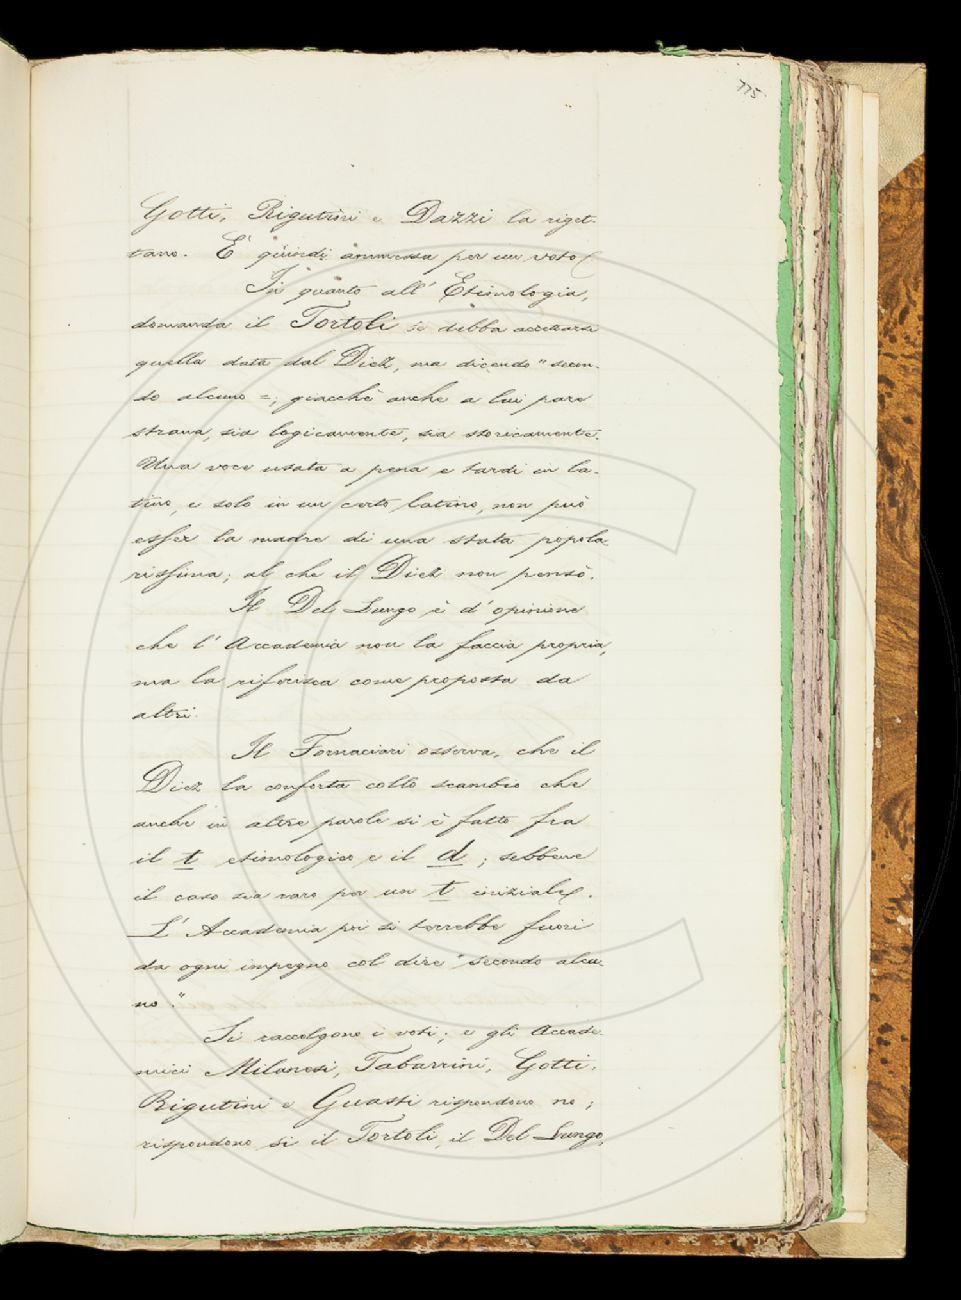 775
Gotti, Rigutini e Dazzi la riget-
tano. È quindi ammessa per un voto.
In quanto all' Etimologia,
domanda il Tortoli se debba accettarsi
quella data dal Diez, ma dicendo "secon-
do alcuno =; giacchè anche a lui pare
strana, sia logicamente, sia storicamente.
Una voce usata a pena e tardi in la-
tino, e solo in un certo latino, non può
esser la madre di una stata popola-
rissima; al che il Diez non pensò.
Il Del Lungo è d' opinione
che l' Accademia non la faccia propria,
ma la riferisca come proposta da
altri.
Il Fornaciari osserva, che il
Diez la conforta collo scambio che
anche in altre parole si è fatto fra
il t etimologico e il d; sebbene
il caso sia raro per un t iniziale.
L' Accademia poi si terrebbe fuori
da ogni impegno col dire "secondo alcu-
no."
Si raccolgono i voti; e gli Accade-
mici Milanesi, Tabarrini, Gotti,
Rigutini e Guasti rispondono no;
rispondono si il Tortoli, il Del Lungo,